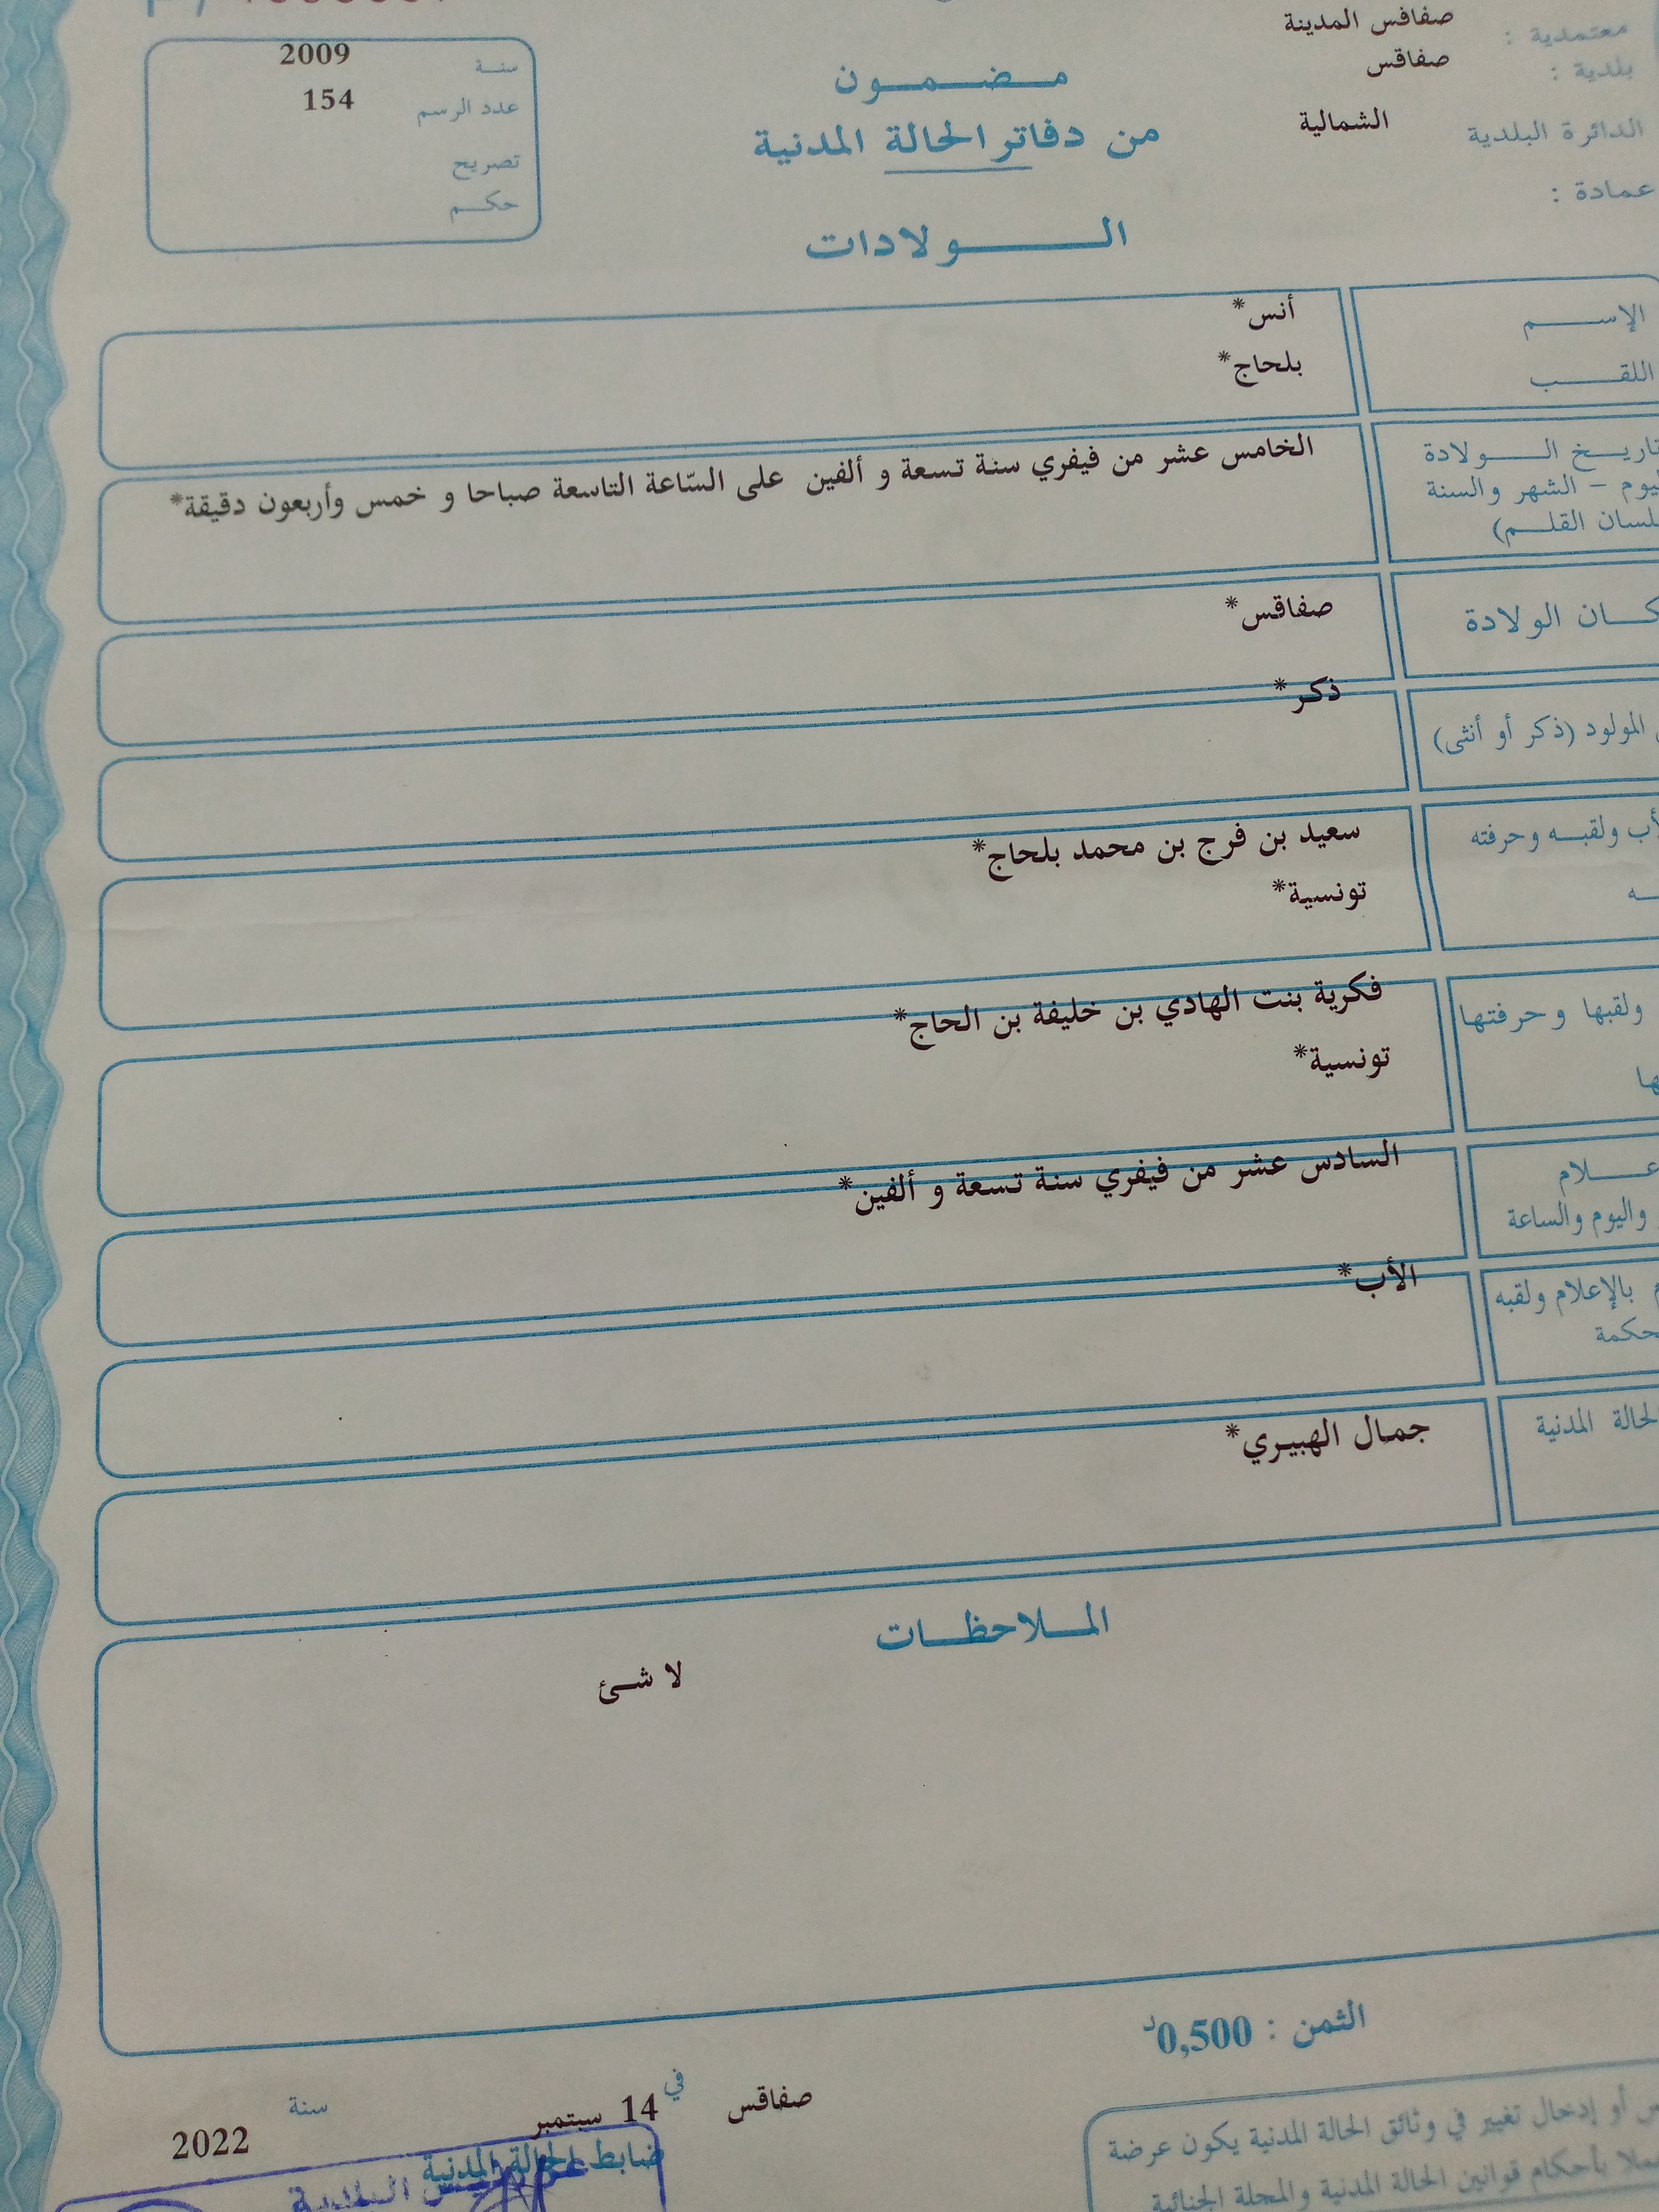 صفاقس المدينة
معتمدية :
صفاقس
بلدية :
الشمالية
الدائرة البلدية
عمادة :
مـضـمـون
من دفاتر الحالة المدنية
الـولادات
2009 سنة
154 عدد الرسم
تصريح
حكم
الإسم أنس*
اللقب بلحاج*
الولادة الخامس عشر من فيفري سنة تسعة و ألفين على السّاعة التاسعة صباحا و خمس وأربعون دقيقة*
– الشهر والسنة
القلم)
الولادة صفاقس*
المولود (ذكر أو أنثى) ذكر*
ولقبه وحرفته سعيد بن فرج بن محمد بلحاج*
تونسية*
ولقبها وحرفتها فكرية بنت الهادي بن خليفة بن الحاج*
تونسية*
السادس عشر من فيفري سنة تسعة و ألفين*
واليوم والساعة
بالإعلام ولقبه الأب*
الحالة المدنية جمال الهبيري*
الملاحظات
لا شئ
الثمن : 0,500د
صفاقس في 14 سبتمبر سنة 2022
ضابط الحالة المدنية
أو إدخال تغيير في وثائق الحالة المدنية يكون عرضة
بأحكام قوانين الحالة المدنية والمجلة الجنائية